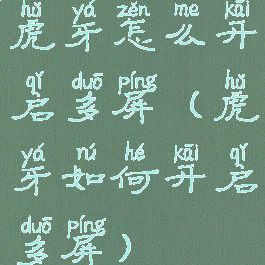 hǔ yá zěn me kāi
虎牙怎么开
qǐ duō píng hǔ
启多屏（虎
yá rú hé kāi qǐ
牙如何开启
duō píng
多屏）